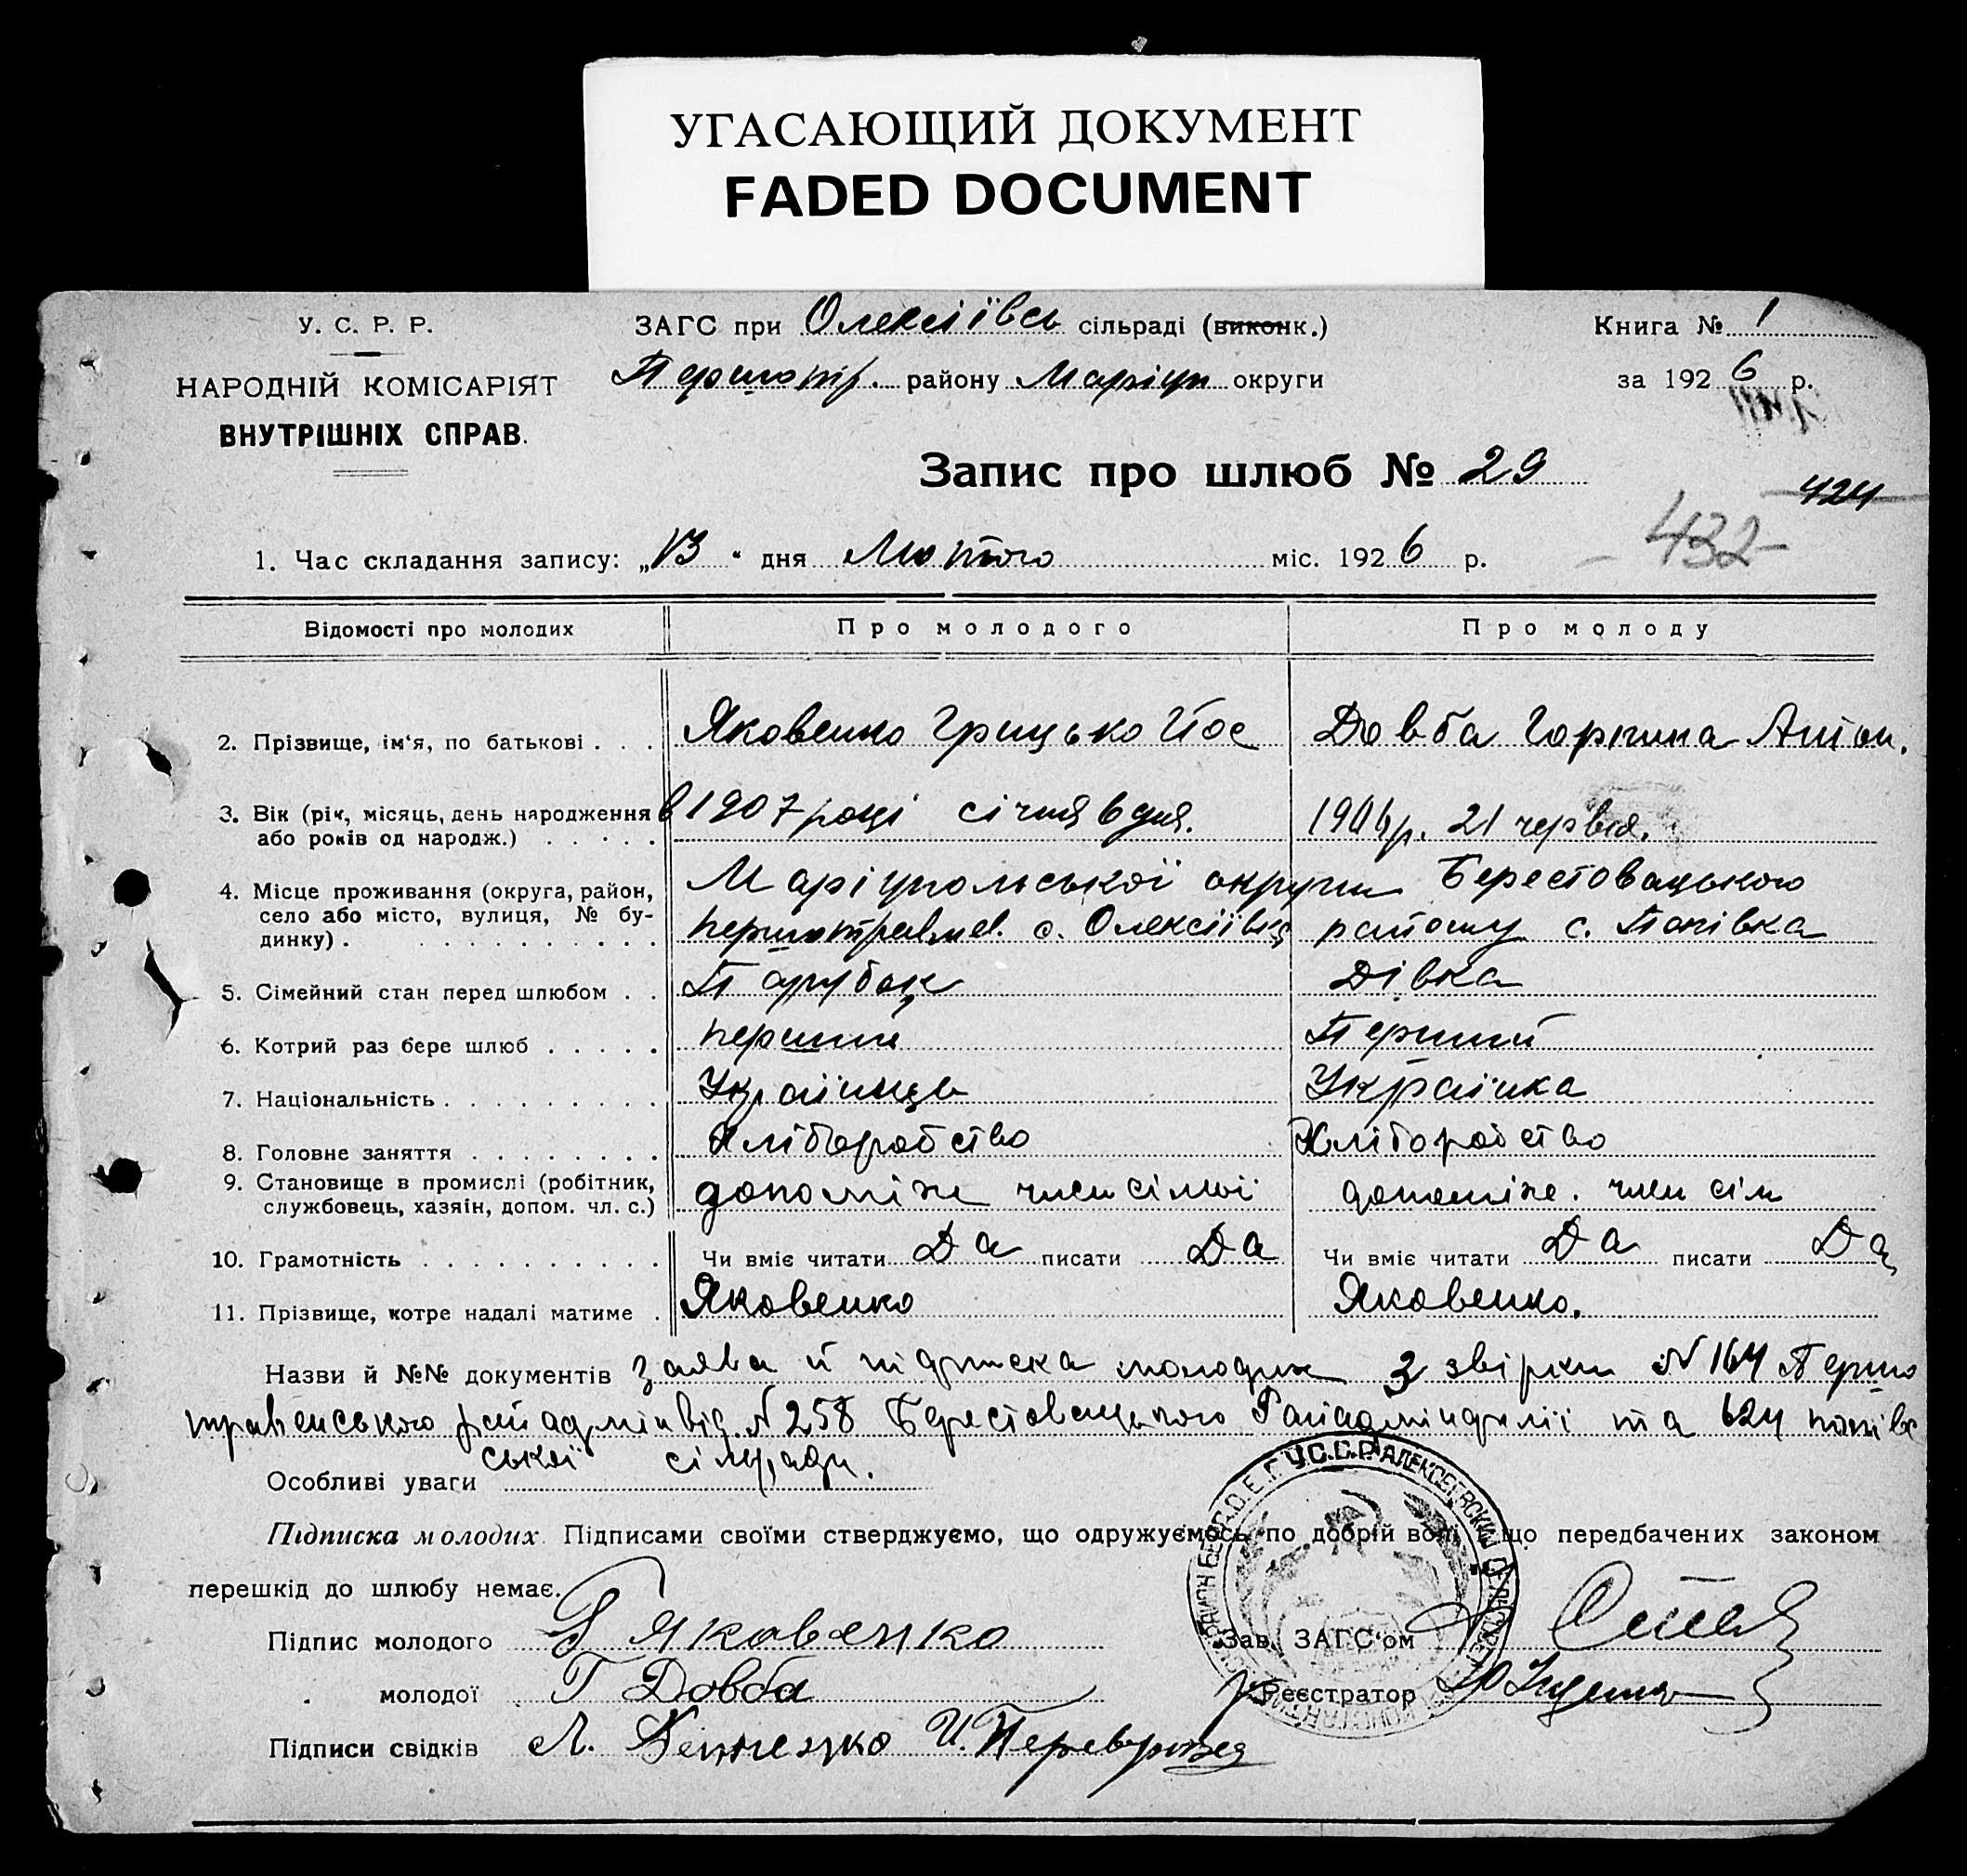 УГАСАЮЩИЙ ДОКУМЕНТ
FADED DOCUMENT
У. С. Р. Р.
НАРОДНІЙ КОМІСАРІЯТ
ВНУТРІШНІХ СПРАВ.
ЗАГС при Олексіївсь сільраді (виконк.)
Першотр. району Маріуп округи
Книга № 1
за 1926 р.
Запис про шлюб № 29
424
432
1. Час складання запису: „13“ дня Лютого міс. 1926 р.
Відомості про молодих Про молодого Про молоду
2. Прізвище, ім'я, по батькові . . . Яковенко Грицько Йос Довба Горпина Антон.
3. Вік (рік, місяць, день народження в 1907 році січня 6 дня. 1906 р. 21 червня.
або років од народж.) . . . . .
4. Місце проживання (округа, район, Маріупольської округи Берестовацького
село або місто, вулиця, № бу- першотравнев. с. Олексіївка району с. Попівка
динку) . . . . . . . . . . .
5. Сімейний стан перед шлюбом . . Парубок Дівка
6. Котрий раз бере шлюб . . . . . перший Перший
7. Національність . . . . . . . . . Українець Українка
8. Головне заняття . . . . . . . . Хліборобство Хліборобство
9. Становище в промислі (робітник, допоміжн член сімьї допоміжн. член сім
службовець, хазяїн, допом. чл. с.)
10. Грамотність . . . . . . . . . . Чи вміє читати Да писати Да Чи вміє читати Да писати Да
11. Прізвище, котре надалі матиме . Яковенко Яковенко.
Назви й №№ документів заява й підписка молодих 3 звірки № 164 Першо
травенського райадмінвід. № 258 Берестовацького та 624 попівс
ської сільради.
Особливі уваги
Підписка молодих. Підписами своїми стверджуємо, що одружуємось по добрій волі що передбачених законом
перешкід до шлюбу немає.
Підпис молодого Г Яковенко Зав. ЗАГС'ом
молодої Г Довба Реєстратор
Підписи свідків Л. И.
У.С.С.Р. АЛЕКСЕЕВСКИЙ